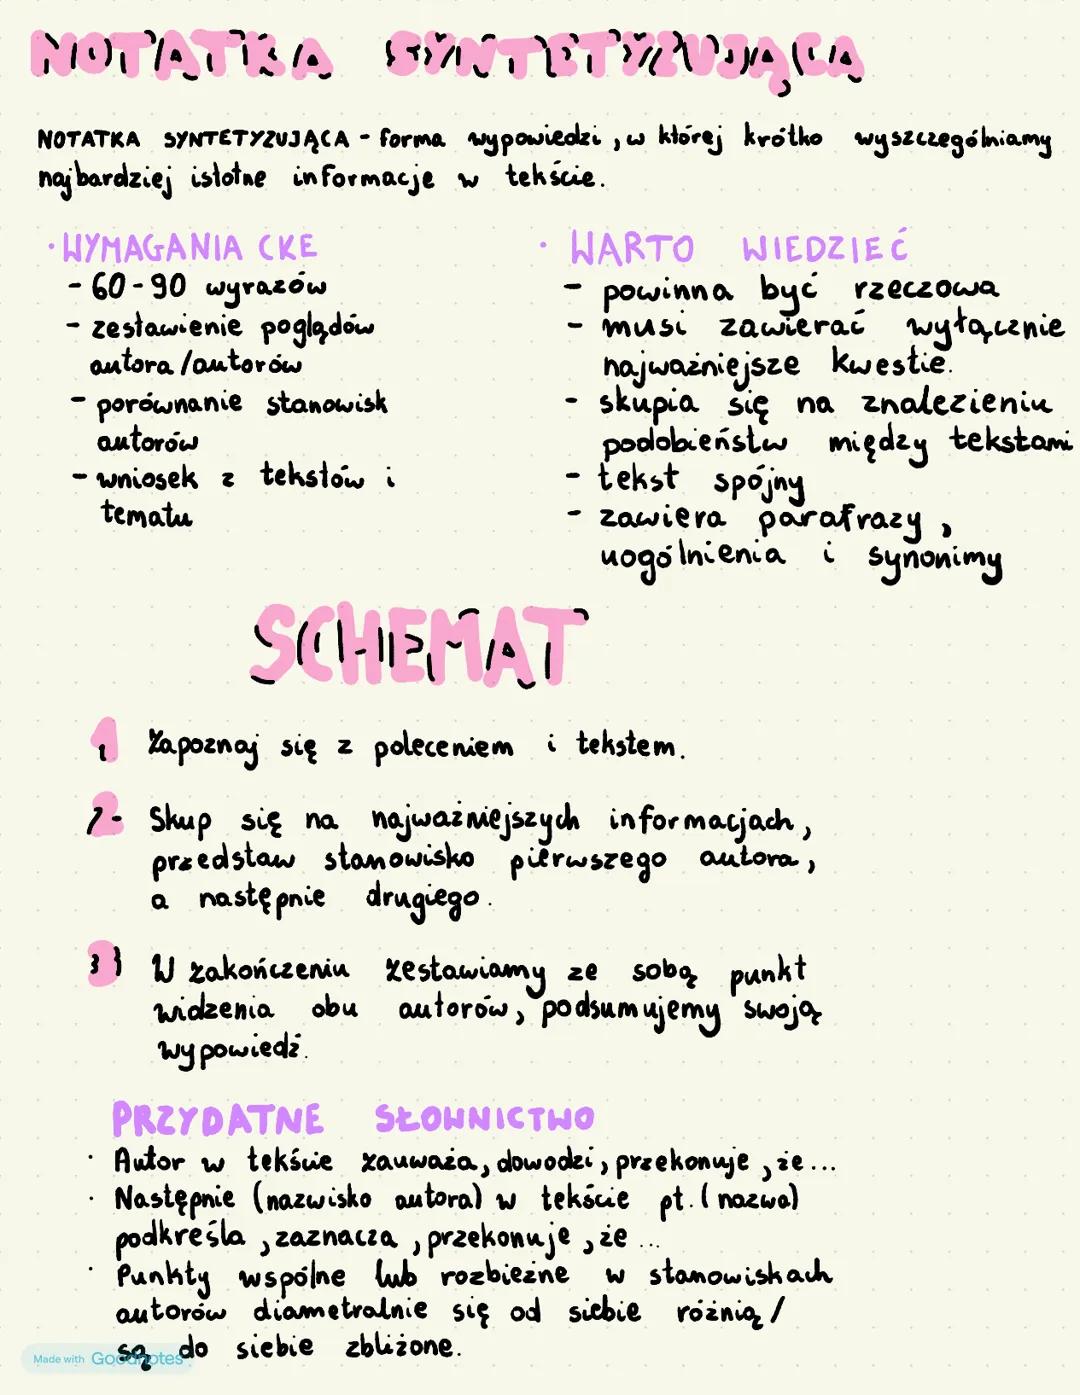 NOTATKA SYNTETYZUJĄCA
NOTATKA SYNTETYZUJĄCA - forma wypowiedzi, w której krótko wyszczególniamy
najbardziej istotne informacje w tekście.
· WYMAGANIA CKE
- 60-90 wyrazów
- zestawienie poglądów
autora/autorów
- porównanie stanowisk
autorów
- wniosek z tekstów i
tematu
· WARTO WIEDZIEĆ
- powinna być rzeczowa
- musi zawierać wyłącznie
najważniejsze kwestie.
- skupia się na znalezieniu
podobieństw między tekstami
- tekst spójny
- zawiera parafrazy,
uogólnienia i synonimy
SCHEMAT
1 Zapoznaj się z poleceniem i tekstem.
2. Skup się na najważniejszych informacjach,
przedstaw stanowisko pierwszego autora,
a następnie drugiego.
3 W zakończeniu zestawiamy ze sobą punkt
widzenia obu autorów, podsumujemy swoją
wypowiedź.
PRZYDATNE SŁOWNICTWO
· Autor w tekście zauważa, dowodzi, przekonuje, że...
· Następnie (nazwisko autora) w tekście pt. (nazwa)
podkreśla, zaznacza, przekonuje, że ...
· Punkty wspólne lub rozbieżne w stanowiskach
autorów diametralnie się od siebie różnią/
są do siebie zbliżone.
Made with Goodnotes